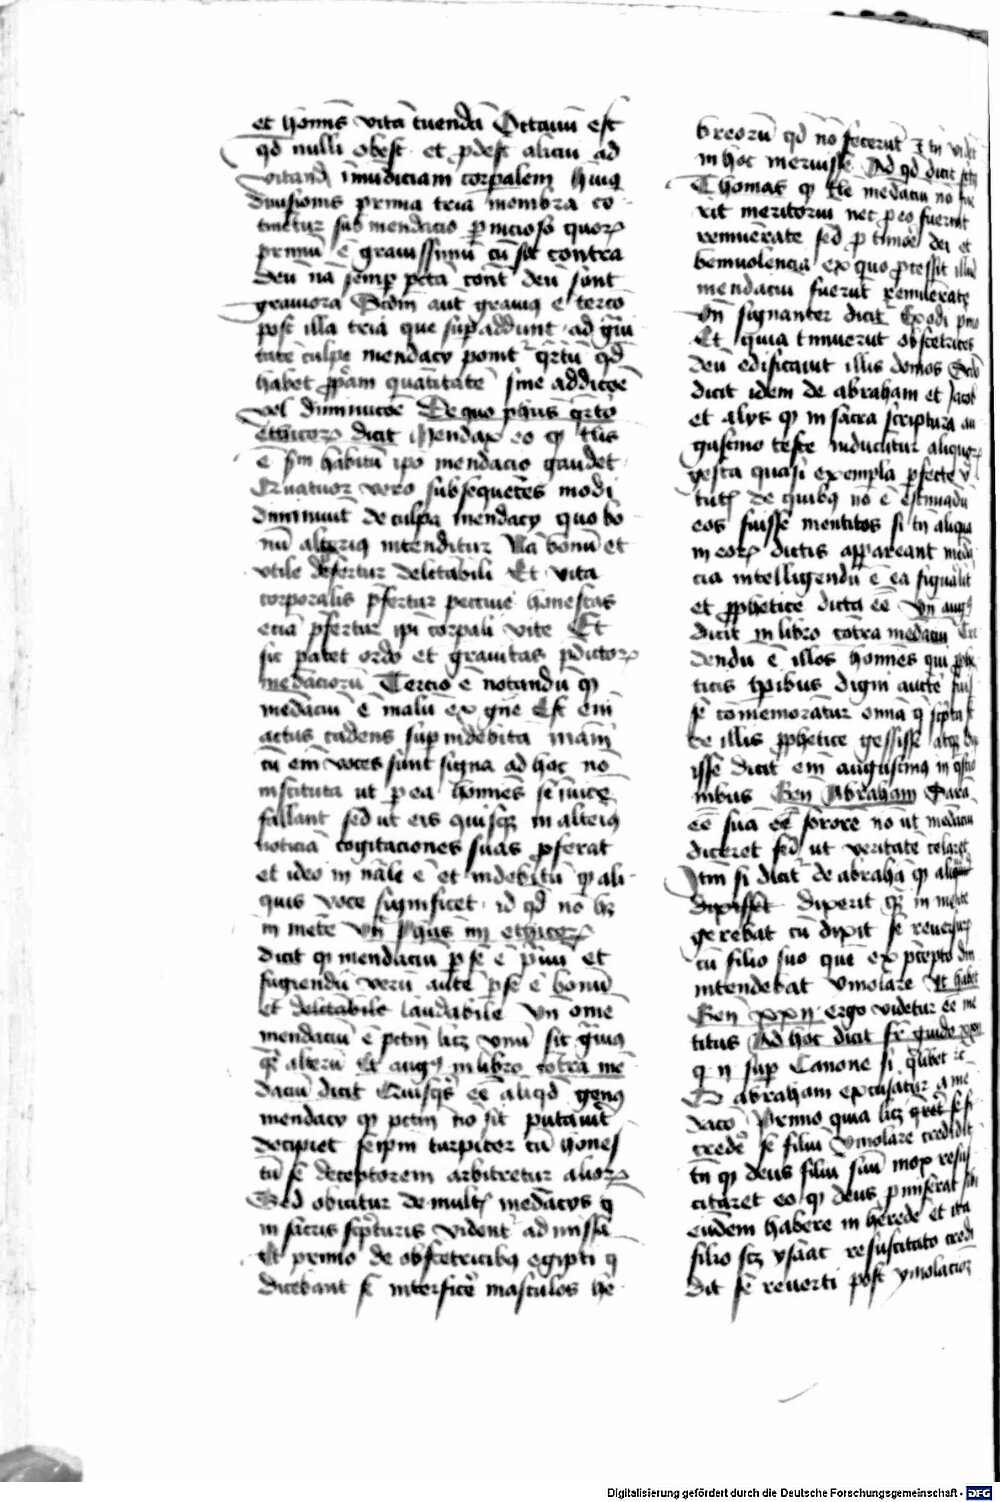 et homīs vitā tuendā Octauū est
qd nulli obest et pdest alicui ad
vitand inmūdiciam corpalem huiq
diuisionis prima tria membra co-
tinētur sub mendacio pnicioso quoꝝ
primū ē grauissimū cū sit contra
deū nā semp pctā contͣ deū sunt
grauiora Scdm aut grauiꝯ ē tercō
post illa tria que supaddunt ad gͣui
tatē culpe mendacy ponit qrtū qd
habet ppͥam quātitatē sine addicōe
vel diminucōe De quo phūs qrto
Ethicoꝝ dicit Mendax eo qͥ tlis
ē sm habitū ipo mendacio gaudet
Quatuor vero subsequētes modi
diminuūt de culpa mendacy quo bo
nū alteriꝯ intenditur Na bonū et
vtile desertur delectabili Et vita
corporalis pfertur peccuie honestas
eciā pfertur ipi corpali vite Et
sic patet ordo et grauitas pdictoꝝ
mēdacioru Tercio ē notandū qͥ
mēdaciū ē malū ex gnē Est eni
actus cadens sup indebita māīm
cū em voces sunt signa ad hoc nō
instituta ut p ea homēs se īuicē
fallant sed ut eis quisqꝫ in alteriꝯ
noticiā cogitaciones suas pferat
et ideo in nāle ē et indebitū qͥ ali-
quis voce significet id qd nō hꝫ
in mēte Vn Phūs iiij ethicoꝝ
dicit qͥ mendaciū p se ē pͣuū et
fugiendū verū autē p se ē bonū
et delectabile laudabile Vn ome
mendaciū ē pctm licꝫ vnū sit gͣuiꝯ
qͣ alterū Et augꝯ in libro cōtra mē
daciū dicit Quisqͥs eē aliqd genꝯ
mendacy qͥ pctm nō sit putauit
decipiet seipm turpiter cū hones
tū se deceptorem arbitretur alioꝝ
Sed obicitur de multꝭ mēdacys q
in sacris scpturis vident ad missa
Et primo de obstetricibꝯ egipti q
dicebant se interficē masculos he-
breorū qd nō fecerūt
in hoc meruisse Ad qd dicit
Thomas qͥ tle mēdaciū nō
rit meritoriū nec p eo fuerūt
remūerate sed p timōe dei et
beniuolencia ex quo pcessit illud
mendaciū fuerūt remūerate
Vn signanter dicit Exodi pmo
Et quia timuerūt obstetrices
deū edificauit illis domos Scdo
dicit idem de abraham et Jacob
et alys qͥ in sacra scriptura au
gustino teste inducūtur aliquoꝝ
gesta quasi exempla pfecte v
tutꝭ de quibꝯ nō ē estimādū
eos fuisse mentitos si tn aliqua
in eoꝝ dictis appareant mēda
cia intelligendū ē ea figuralit
et pphetice dicta eē Vn augꝯ
dicit in libro cōtra mēdaciū Cre
dendū ē illos homēs qui pphe
ticis tpibus digni auctē fuis
se cōmemorātur omīa q scpta st
de illis pphetice gessisse atqꝫ
isse dicit em augustinus in qstio
nibus Gen Abraham Sara
eē suā eē sororē nō ut mēdaciū
diceret sed ut veritatē celaret
Itm si dicit de abrahā qͥ aliquid
dixisset dixerit qͣ in mēte
gerebat cū dixit se reuersur
cū filio suo quē ex pcepto dm
intendebat ymolare Vt habet
Gen xxij ergo videtur eē mē
titus Ad hoc dicit fr guido
q ij sup Canone si qlibet
abraham excusatur a mē
dacō Primo quia licꝫ
crede se filiū ymolare credidit
tn qͥ deus filiū suū mox resus
citaret eo qͥ deus pmiserat sibi
eūdem habere in herede et ita
filio scꝫ ysaac resuscitato credi
dit se reuerti post ymolacioꝫ
Digitalisierung gefördert durch die Deutsche Forschungsgemeinschaft - DFG